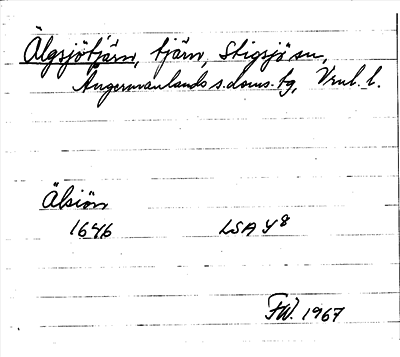 Älgsjötjärn, tjärn, Stigsjö sn,
Ångermanlands s. doms. tg, Vnl. l.
Älsiön
1646 LSA Y8
FW. 1967